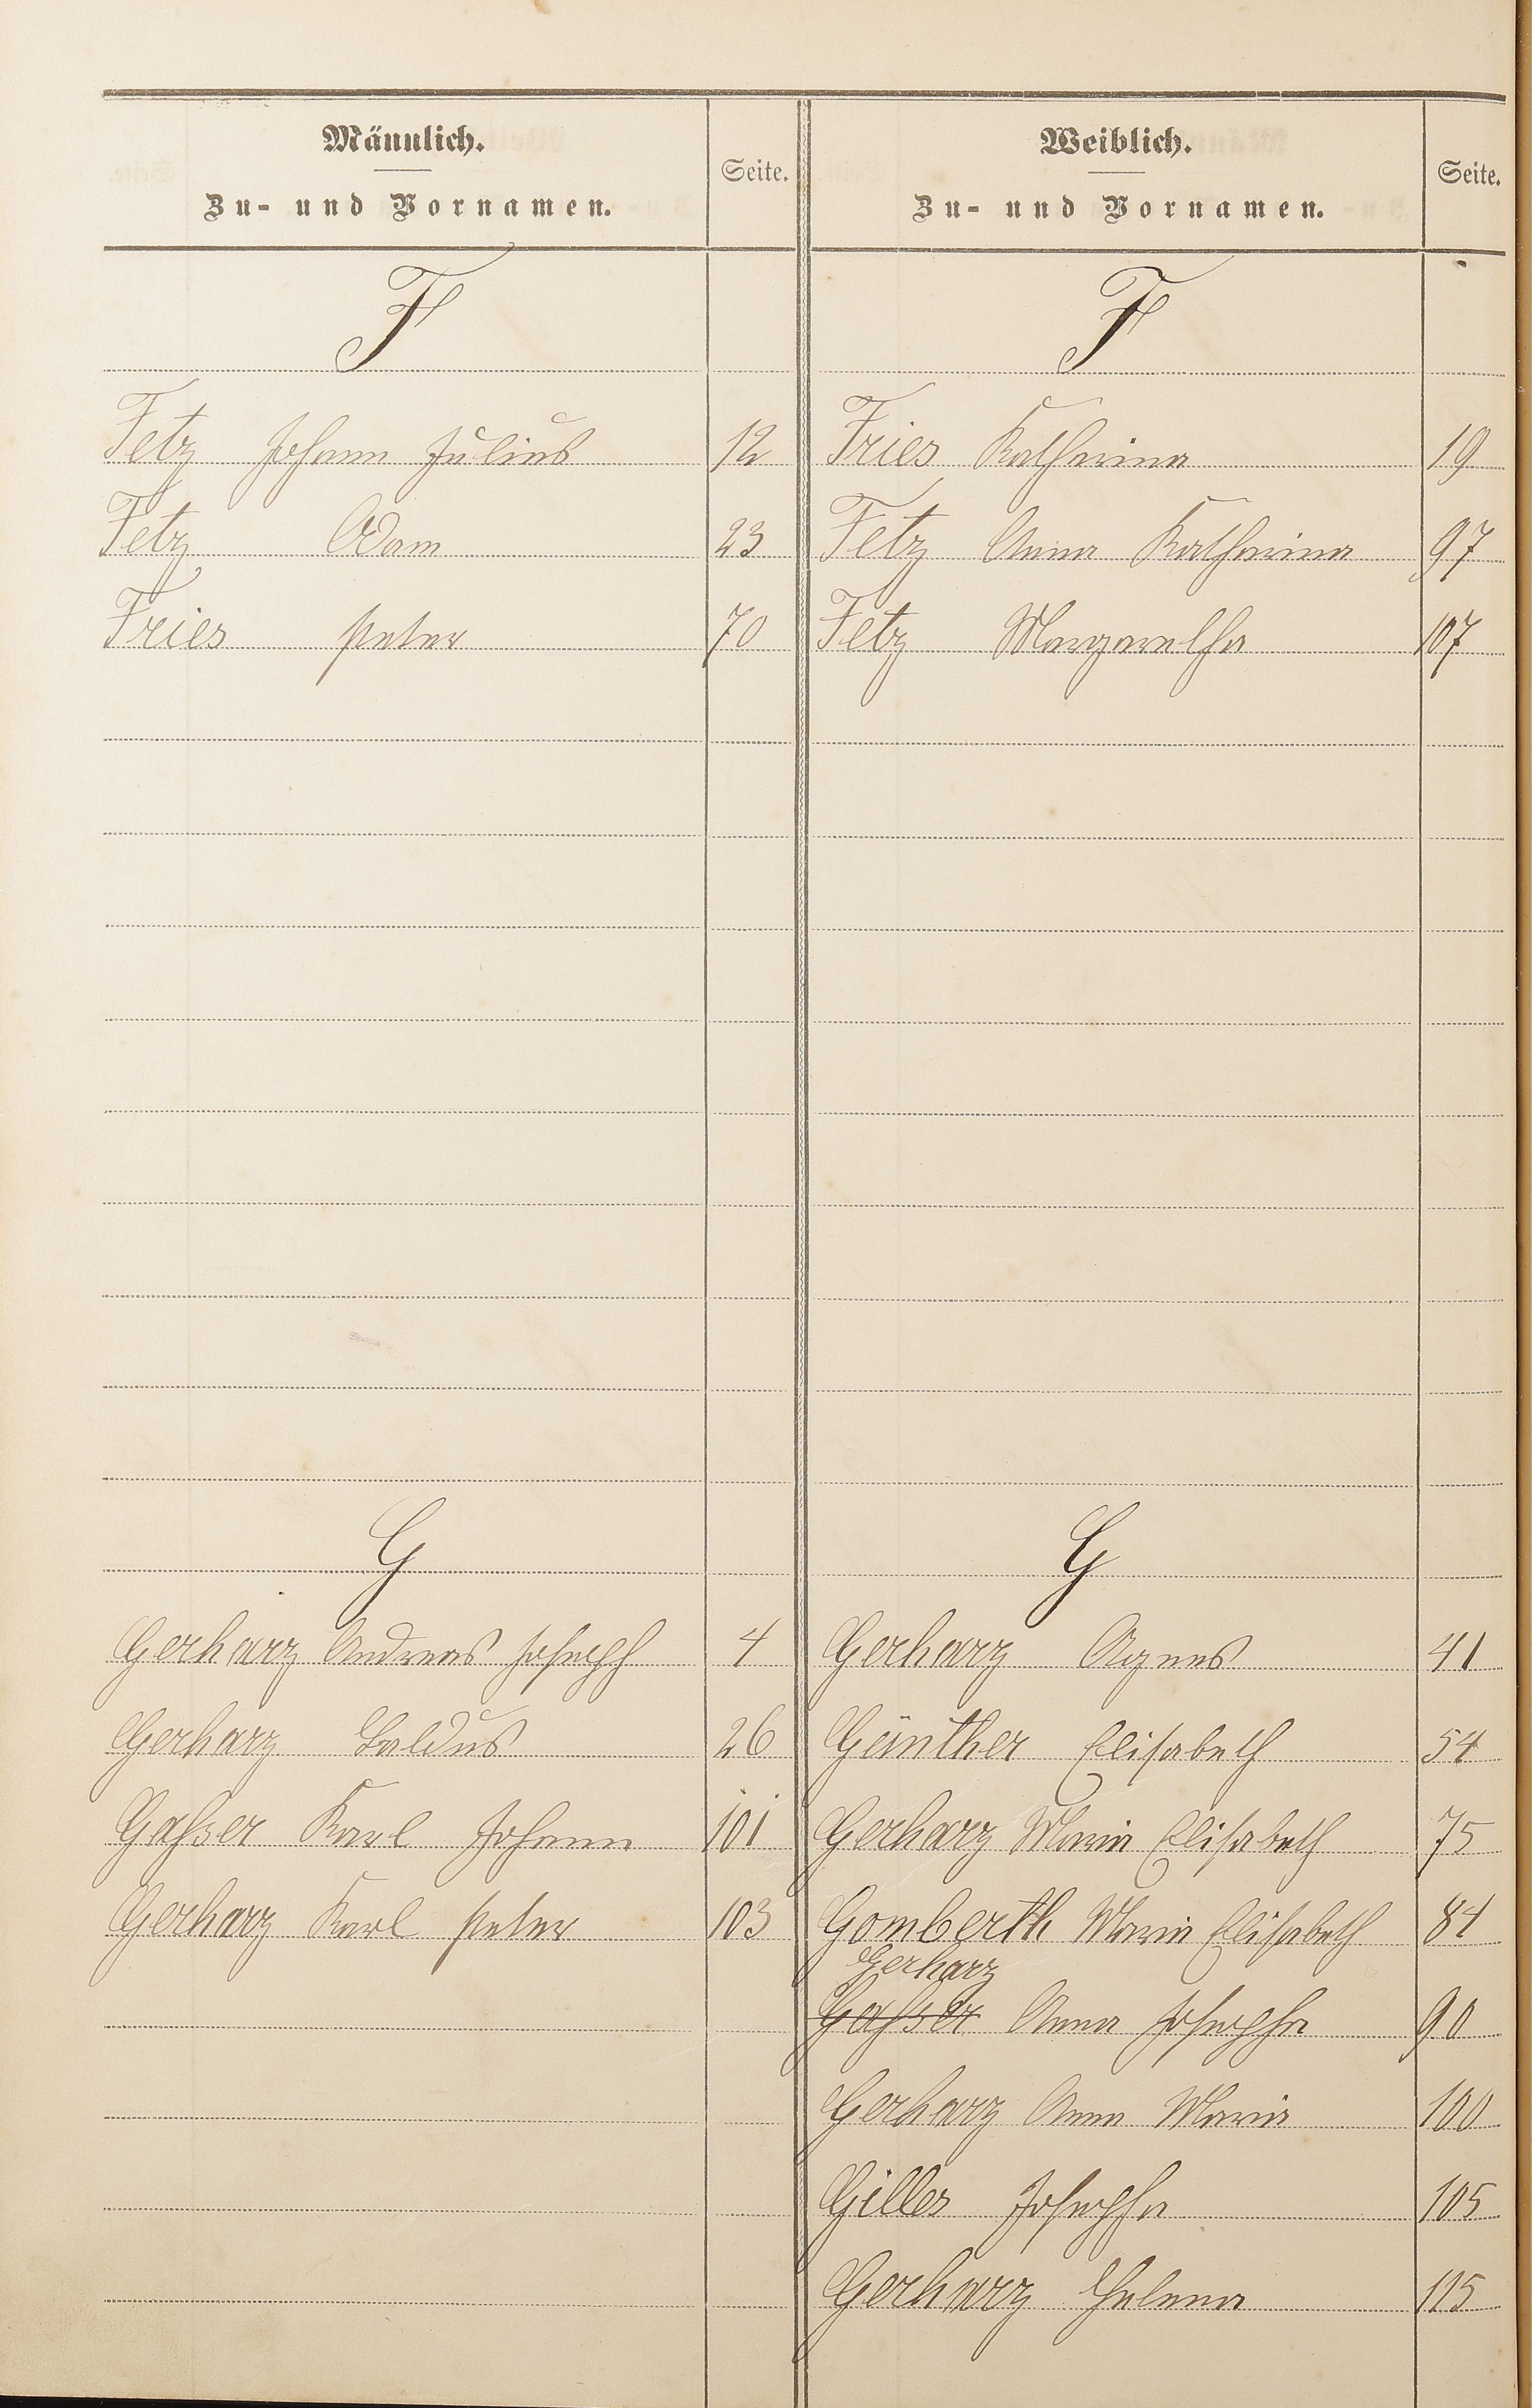 Männlich.
Zu- und Vornamen.
Seite.
F
Fetz Johann Julius 12
Fetz Adam 23
Fries Peter 70
G
Gerharz Andreas Joseph 4
Gerharz Baldus 26
Gaßser Karl Johann 101
Gerharz Karl Peter 103
Weiblich.
Zu- und Vornamen.
Seite.
F
Fries Katharina 19
Fetz Anna Katharina 97
Fetz Margaretha 107
G
Gerharz Agnes 41
Günther Elisabeth 54
Gerharz Maria Elisabeth 75
Gomberth Maria Elisabeth 84
Gerharz
Gaßser Anna Josepha 90
Gerharz Anna Maria 100
Gilles Josepha 105
Gerharz Helena 115